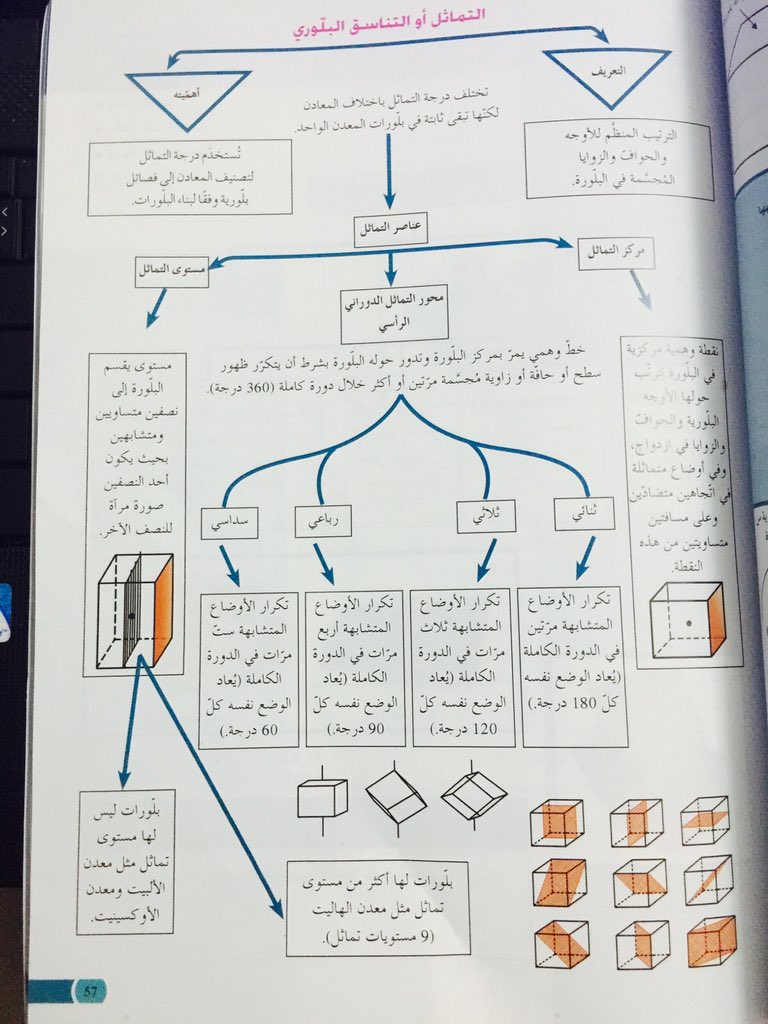 التماثل أو التناسق البلّوري
التعريف
أهمّيته
الترتيب المنظَّم للأوجه
والحوافّ والزوايا
المُجسَّمة في البلّورة.
تختلف درجة التماثل باختلاف المعادن
لكنّها تبقى ثابتة في بلّورات المعدن الواحد.
تُستخدَم درجة التماثل
لتصنيف المعادن إلى فصائل
بلّورية وفقًا لبناء البلّورات.
عناصر التماثل
مركز التماثل
محور التماثل الدوراني
الرأسي
مستوى التماثل
نقطة وهمية مركزية
في البلّورة تترتّب
حولها الأوجه
البلّورية والحوافّ
والزوايا في ازدواج،
وفي أوضاع متماثلة
في اتّجاهين متضادّين
وعلى مسافتين
متساويتين من هذه
النقطة.
خطّ وهمي يمرّ بمركز البلّورة وتدور حوله البلّورة بشرط أن يتكرّر ظهور
سطح أو حافّة أو زاوية مُجسَّمة مرّتين أو أكثر خلال دورة كاملة (360 درجة).
مستوى يقسم
البلّورة إلى
نصفين متساويين
ومتشابهين
بحيث يكون
أحد النصفين
صورة مرآة
للنصف الآخر.
ثنائي
ثلاثي
رباعي
سداسي
تكرار الأوضاع
المتشابهة مرّتين
في الدورة الكاملة
(يُعاد الوضع نفسه
كلّ 180 درجة.)
تكرار الأوضاع
المتشابهة ثلاث
مرّات في الدورة
الكاملة (يُعاد
الوضع نفسه كلّ
120 درجة.)
تكرار الأوضاع
المتشابهة أربع
مرّات في الدورة
الكاملة (يُعاد
الوضع نفسه كلّ
90 درجة.)
تكرار الأوضاع
المتشابهة ستّ
مرّات في الدورة
الكاملة (يُعاد
الوضع نفسه كلّ
60 درجة.)
بلّورات لها أكثر من مستوى
تماثل مثل معدن الهاليت
(9 مستويات تماثل).
بلّورات ليس
لها مستوى
تماثل مثل معدن
الألبيت ومعدن
الأوكسينيت.
57